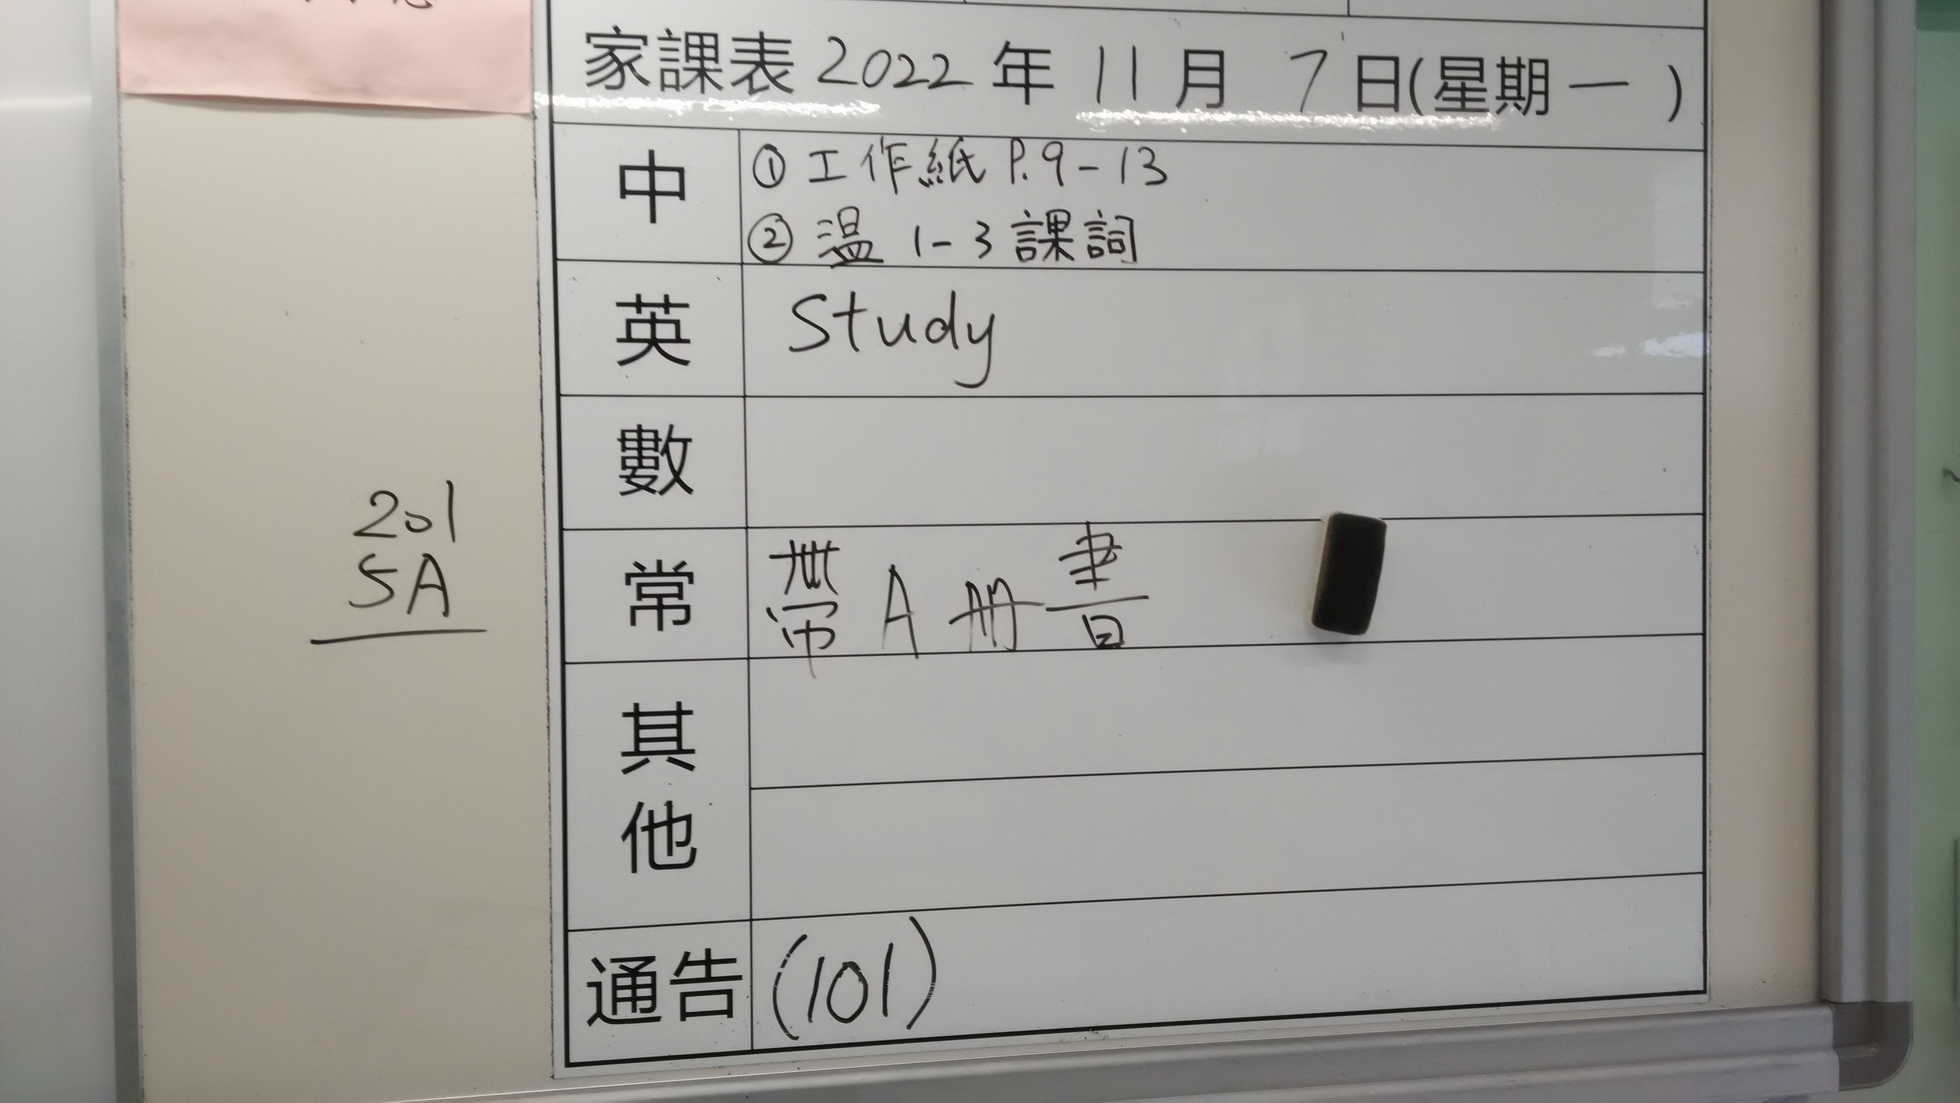 家課表 2022 年 11 月 7 日(星期一)
中 ① 工作紙 P.9-13
② 温 1-3 課詞
英 Study
數
常 帶 A 冊書
其他
通告 (101)
201
5A